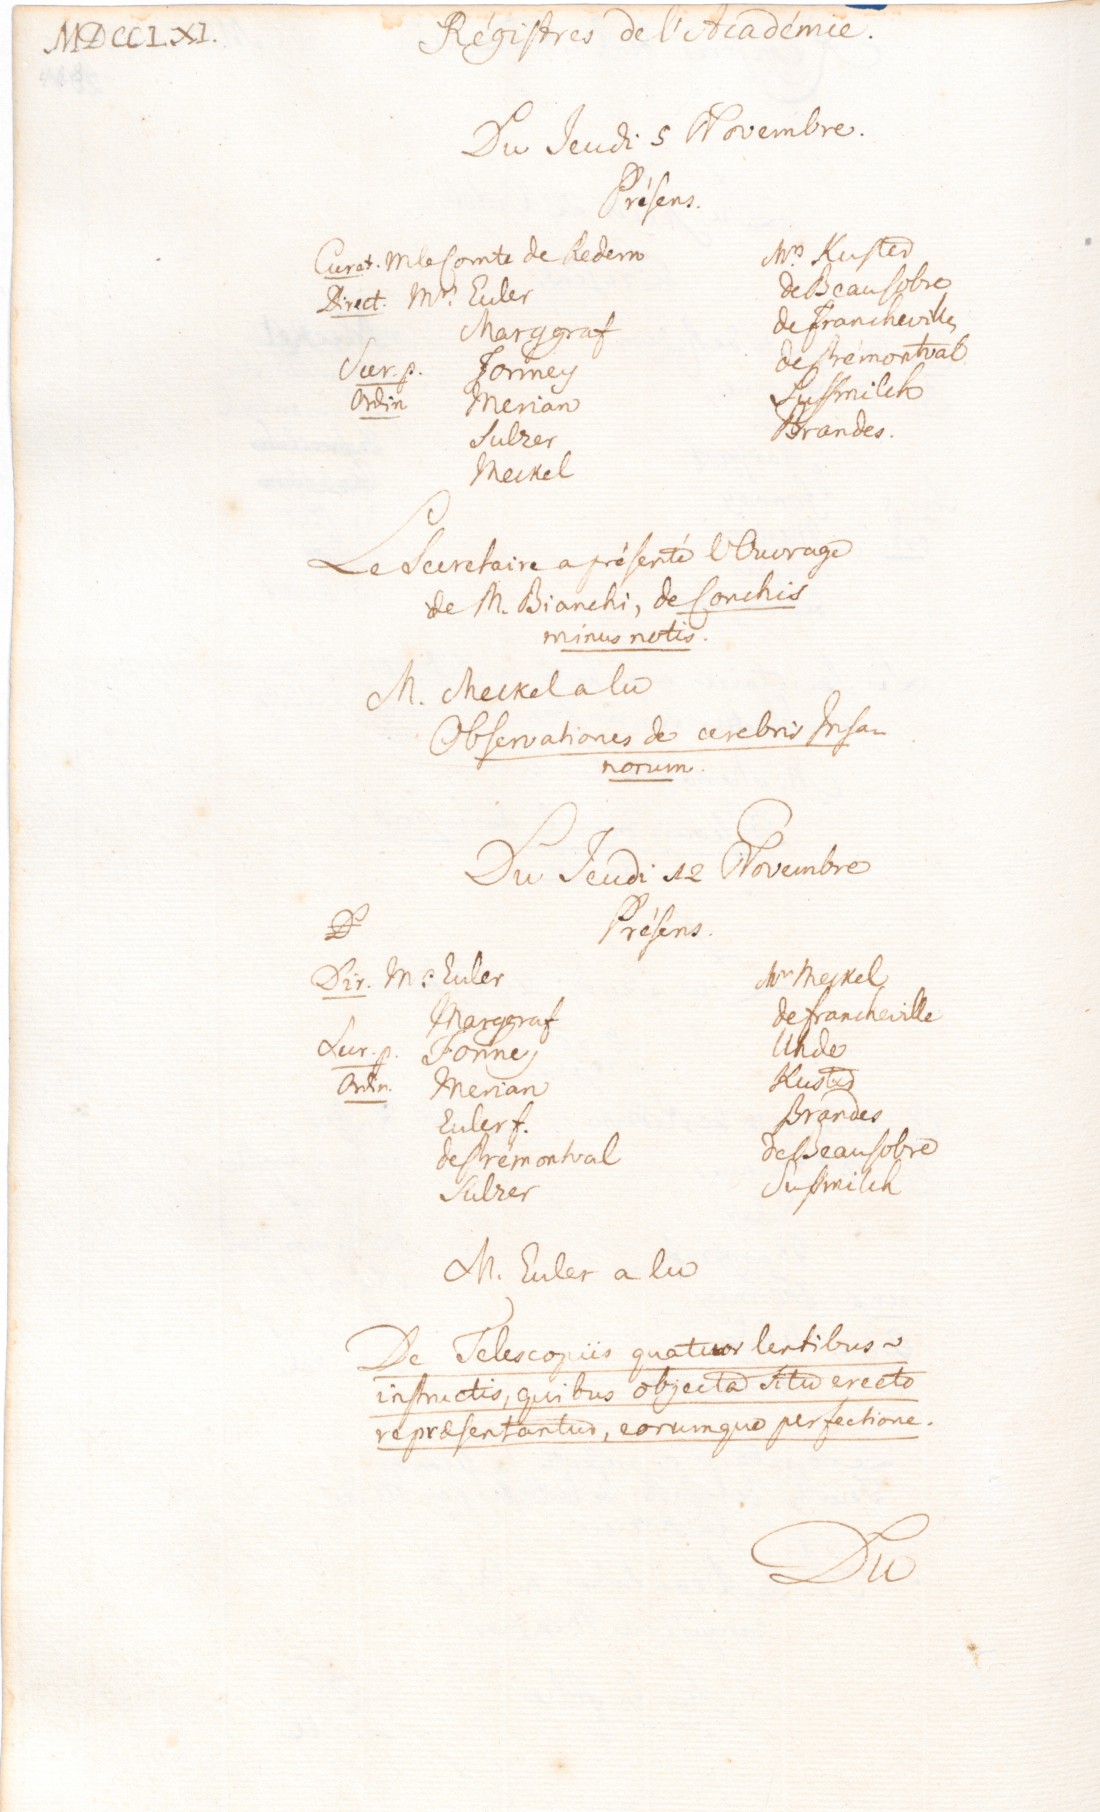 MDCCLXI.
Régistres de l'Académie.
Du Jeudi 5 Novembre.
Présens.
Curat. M le Comte de Redern
Direct. Mrs. Euler
Marggraf
Secr. p. Formey
Ordin Merian
Sulzer
Meckel
Mrs Kuster
de Beausobre
de Francheville
de Prémontval
Sussmilch
Brandes.
Le Secretaire a présenté l'Ouvrage
de M. Bianchi, de Conchis
minus notis.
M. Meckel a lu
Observationes de cerebris Insa-
norum.
Du Jeudi 12 Novembre
Présens.
Dir. Mrs Euler
Marggraf
Secr. p. Formey
Ordin. Merian
Euler f.
de Prémontval
Sulzer
Mrs Meckel
de Francheville
Uhde
Kuster
Brandes
de Beausobre
Sussmilch
M. Euler a lu
De Telescopiis quatuor lentibus
instructis, quibus objecta situ erecto
repræsentantur, eorumque perfectione.
Du